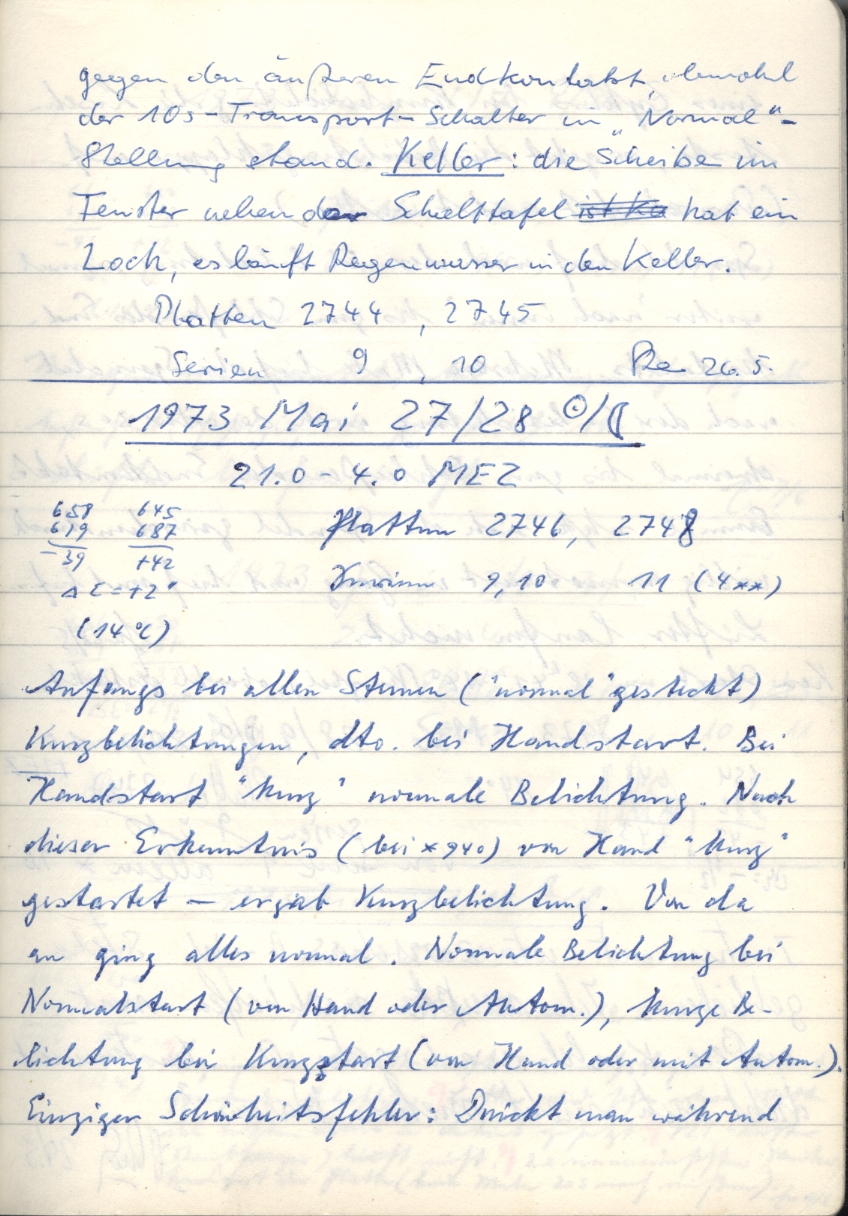 gegen den äußeren Endkontakt, obwohl
der 10s-Transport-Schalter in "Normal"-
Stellung stand. Keller: die Scheibe im
Fenster neben der Schalttafel ist ka hat ein
Loch, es läuft Regenwasser in den Keller.
Platten 2744, 2745
Serien 9, 10 26.5.
1973 Mai 27/28 ☉/☾
21.0 - 4.0 MEZ
658 645
619 687 Platten 2746, 2748
-39 +42
Serien 9, 10 11 (4**)
(14°C)
Anfangs bei allen Sternen ("normal" gesteckt)
Kurzbelichtungen, dto. bei Handstart. Bei
Handstart "Kurz" normale Belichtung. Nach
dieser Erkenntnis (bei *940) von Hand "Kurz"
gestartet — ergab Kurzbelichtung. Von da
an ging alles normal. Normale Belichtung bei
Normalstart (von Hand oder Autom.), kurze Be-
lichtung bei Kurzstart (von Hand oder mit Autom.).
Einziger Schönheitsfehler: Drückt man während